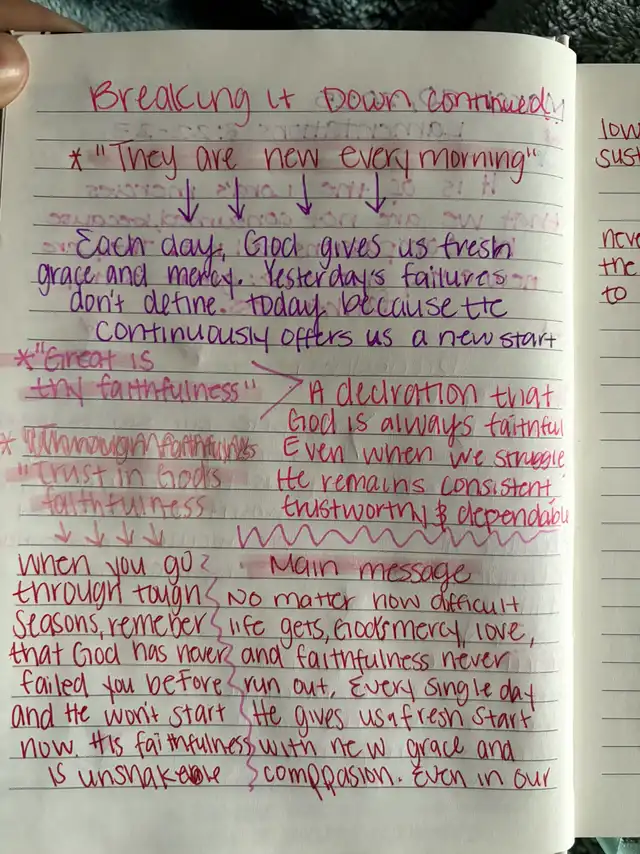 Breaking it Down continued
* "They are new every morning"
Each day, God gives us fresh
grace and mercy. Yesterday's failures
don't define today because He
continuously offers us a new start
* "Great is
thy faithfulness"
A declration that
God is always faithful
Even when we struggle
He remains consistent
trustworthy & dependable
*
"Trust in God's
faithfulness
When you go
through tough
Seasons, remeber
that God has never
failed you before
and He won't start
now. His faithfulness
is unshakeable
Main message
No matter how difficult
life gets, God's mercy, love,
and faithfulness never
run out. Every single day
He gives us a fresh start
with new grace and
comppasion. Even in our
low
sust
neve
the
to